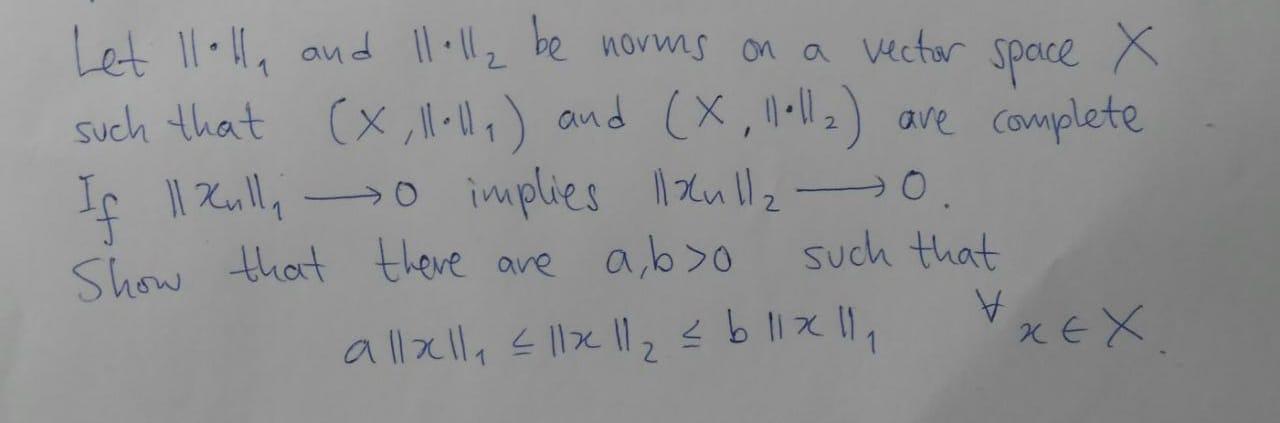 Let ||·||₁ and ||·||₂ be norms on a vector space X
such that (X, ||·||₁) and (X, ||·||₂) are complete
If ||xₙ||₁ ⟶ 0 implies ||xₙ||₂ ⟶ 0.
Show that there are a,b>0 such that
a||x||₁ ≤ ||x||₂ ≤ b||x||₁ ∀ x ∈ X.